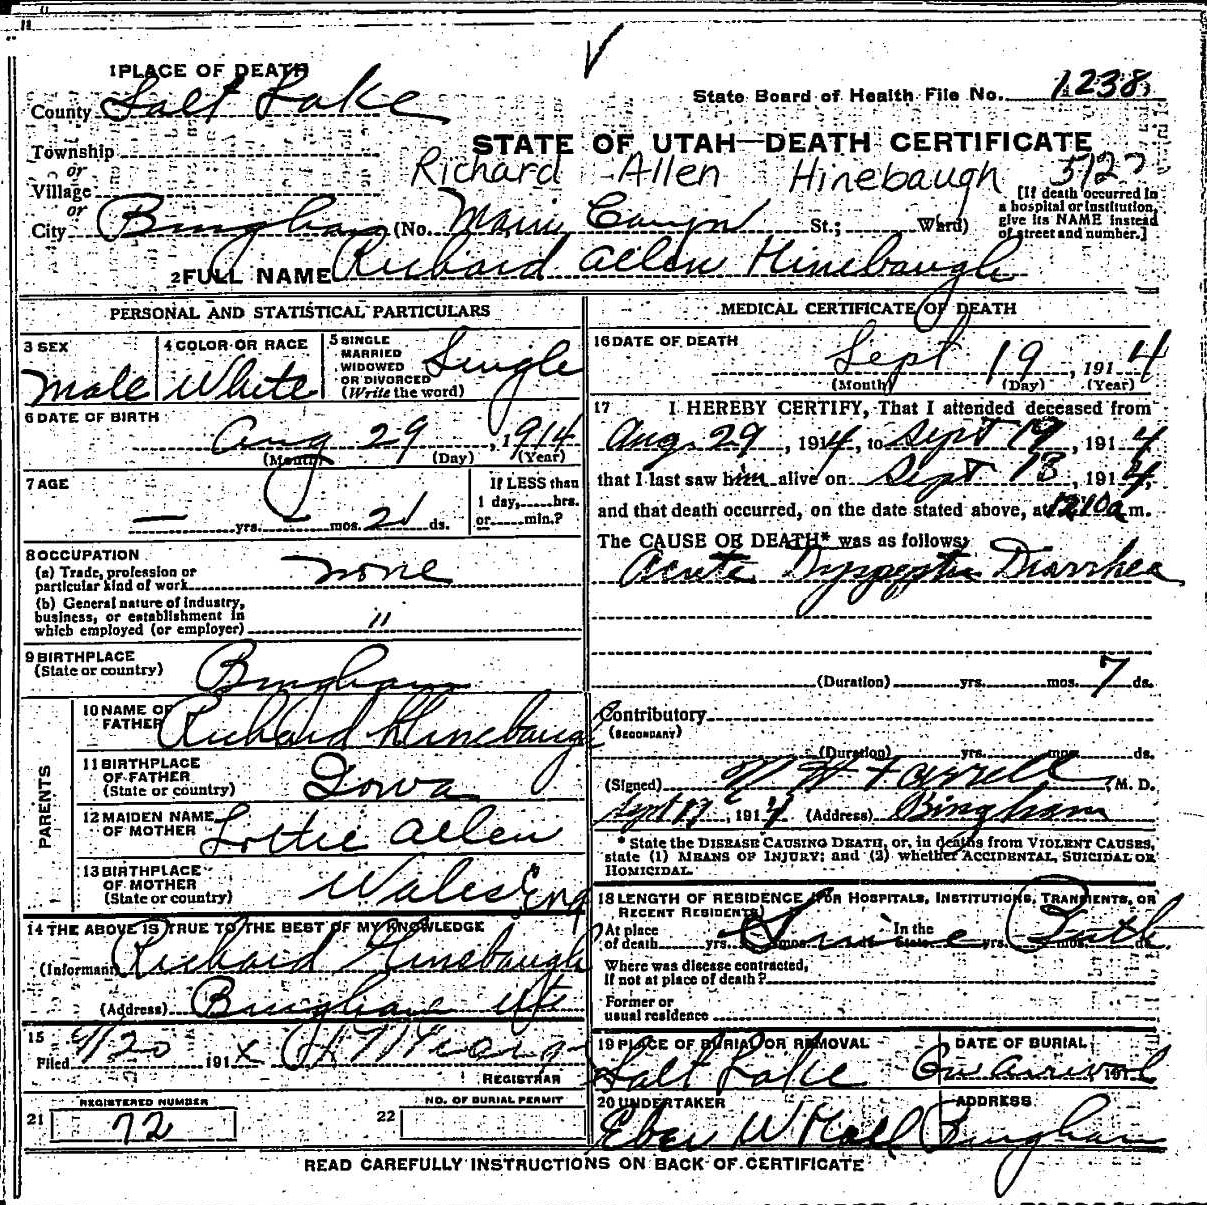 1 PLACE OF DEATH
County Salt Lake
State Board of Health File No. 1238
Township
STATE OF UTAH—DEATH CERTIFICATE
or
Richard Allen Hinebaugh
Village
[If death occurred in a hospital or institution, give its NAME instead of street and number.]
or
City Bingham (No. Main Canyon St.; Ward)
2 FULL NAME Richard Allen Hinebaugh
PERSONAL AND STATISTICAL PARTICULARS
3 SEX
Male
4 COLOR OR RACE
White
5 SINGLE MARRIED WIDOWED OR DIVORCED (Write the word)
Single
6 DATE OF BIRTH
Aug 29, 1914
(Month) (Day) (Year)
7 AGE
— yrs. — mos. 21 ds.
If LESS than 1 day, hrs. or min.?
8 OCCUPATION
(a) Trade, profession or particular kind of work none
(b) General nature of industry, business, or establishment in which employed (or employer) "
9 BIRTHPLACE
(State or country) Bingham
PARENTS
10 NAME OF FATHER Richard Hinebaugh
11 BIRTHPLACE OF FATHER
(State or country) Iowa
12 MAIDEN NAME OF MOTHER Lottie Allen
13 BIRTHPLACE OF MOTHER
(State or country) Wales Eng
14 THE ABOVE IS TRUE TO THE BEST OF MY KNOWLEDGE
(Informant) Richard Hinebaugh
(Address) Bingham Ut
15
Filed 9/20 191
REGISTRAR
REGISTERED NUMBER
21 72
NO. OF BURIAL PERMIT
22
MEDICAL CERTIFICATE OF DEATH
16 DATE OF DEATH
Sept 19, 1914
(Month) (Day) (Year)
17 I HEREBY CERTIFY, That I attended deceased from
Aug. 29, 1914, to Sept 19, 1914
that I last saw him alive on Sept 18, 1914,
and that death occurred, on the date stated above, at 1210a m.
The CAUSE OF DEATH* was as follows:
Acute Dyspeptic Diarrhea
(Duration) yrs. mos. 7 ds.
Contributory
(SECONDARY)
(Duration) yrs. mos. ds.
(Signed) Farrell M. D.
Sept 1914 (Address) Bingham
* State the DISEASE CAUSING DEATH, or, in deaths from VIOLENT CAUSES,
state (1) MEANS OF INJURY; and (2) whether ACCIDENTAL, SUICIDAL OR
HOMICIDAL.
18 LENGTH OF RESIDENCE (FOR HOSPITALS, INSTITUTIONS, TRANSIENTS, OR
RECENT RESIDENTS)
At place of death yrs. mos. ds. In the State yrs. mos. ds.
Since Birth
Where was disease contracted,
if not at place of death?
Former or
usual residence
19 PLACE OF BURIAL OR REMOVAL
Salt Lake
DATE OF BURIAL
On arrival 191
20 UNDERTAKER
Eber W Hall
ADDRESS
Bingham
READ CAREFULLY INSTRUCTIONS ON BACK OF CERTIFICATE